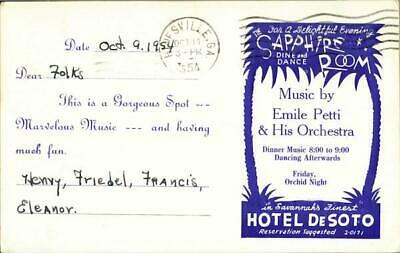 Date Oct. 9, 1954
GA.
1954
Dear Folks
This is a Gorgeous Spot ---
Marvelous Music --- and having
much fun.
Henry, Friedel, Francis,
Eleanor.
For A Delightful Evening
THE SAPPHIRE
DINE and DANCE
ROOM
Music by
Emile Petti
& His Orchestra
Dinner Music 8:00 to 9:00
Dancing Afterwards
Friday,
Orchid Night
in Savannah's Finest
HOTEL DESOTO
Reservation Suggested 2-0171